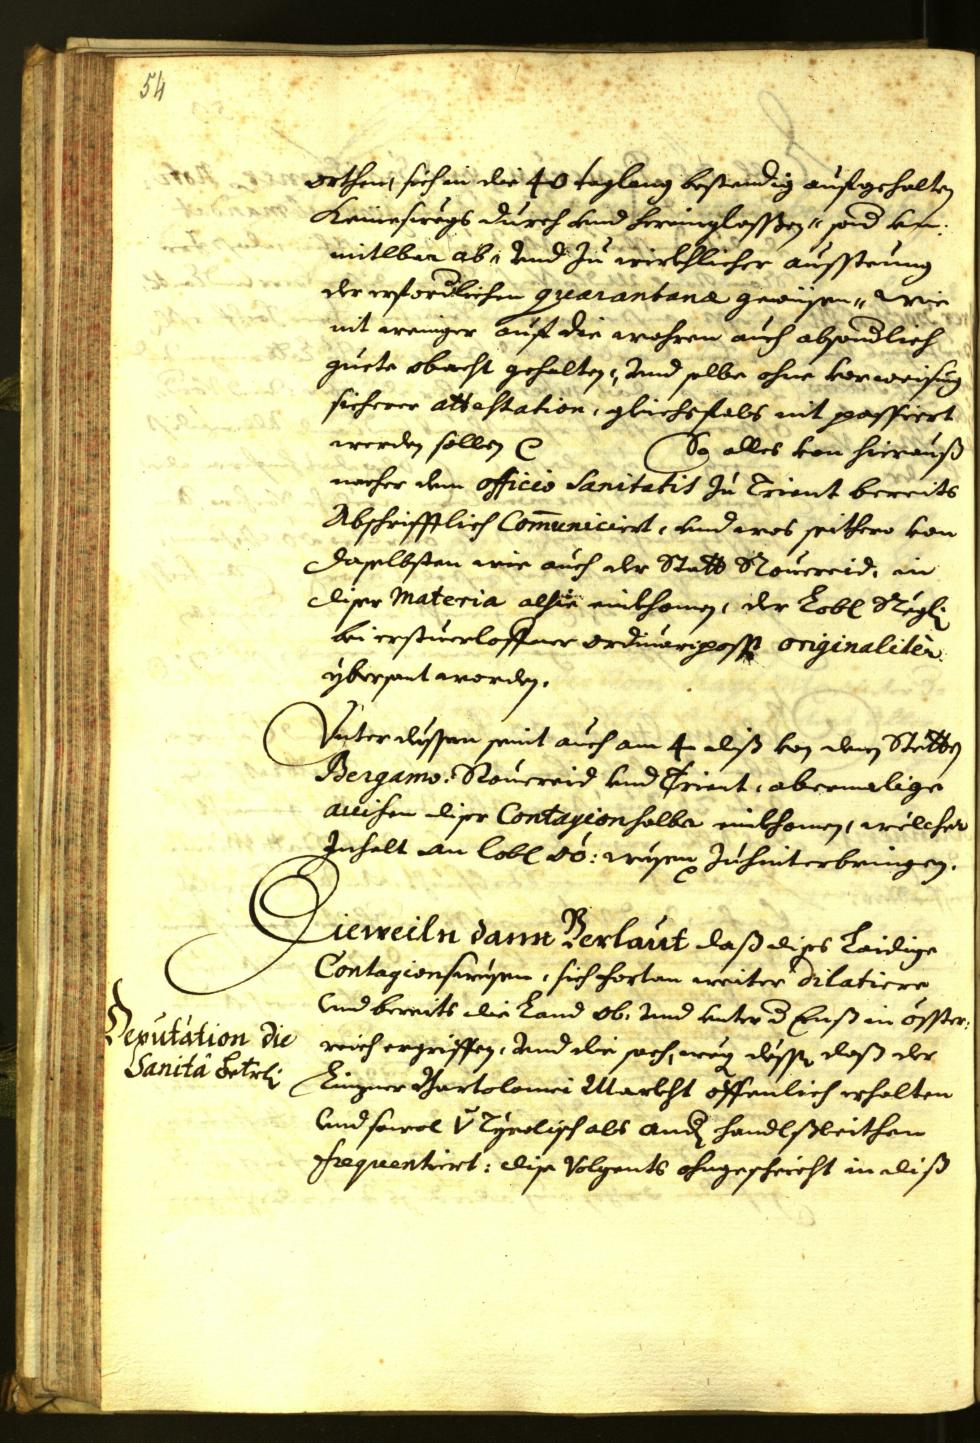 54
orthen, sich in die 40 taglang bestendig aufgehalten
Keineswegs durch und hereinglassßen, sond un-
mitlbar ab, und zu würkhlicher aussteung
der erfordlichen quarantana gewisen, wie
nit weniger auf die wahren auch absondlich
guete obacht gehalten, und selbe ohne vorweisung
sicherer attestation, gleichsfals nit passiert
werden sollen So alles von hierauß
nacher dem officio Sanitatis zu Trient bereits
Abschrifftlich Com̄uniciert, und was seithero von
daselbsten wie auch der Statt Rouereid, in
diser Materia alhie einkhomen, der Lobl Regl:
bei erstuerloffner ordinariposst originalitèr
ybersant worden.
Vnter dessen seint auch am 4 diß von denen Stetten
Bergamo: Rouereid und Trient, abermalige
auisen diser Contagion halber einkhomen, welcher
Inhalt an lobl oö: wesen zuhinterbringen.
Dieweiln dann Verlaut daß dises Laidige
Contagionswesen, sich fortan weiter dilatiere
und bereits die Land ob: und unter d Enß in össter:
reich ergriffen, und die sach, weg dessen daß der
Linzner Bartolomei Markht öffenlich erhalten
und sowol v Tyrolisch als and handlßleithen
frequentiert: dise Volgents ohngescheicht in diß
Deputation die
Sanitâ betrl: